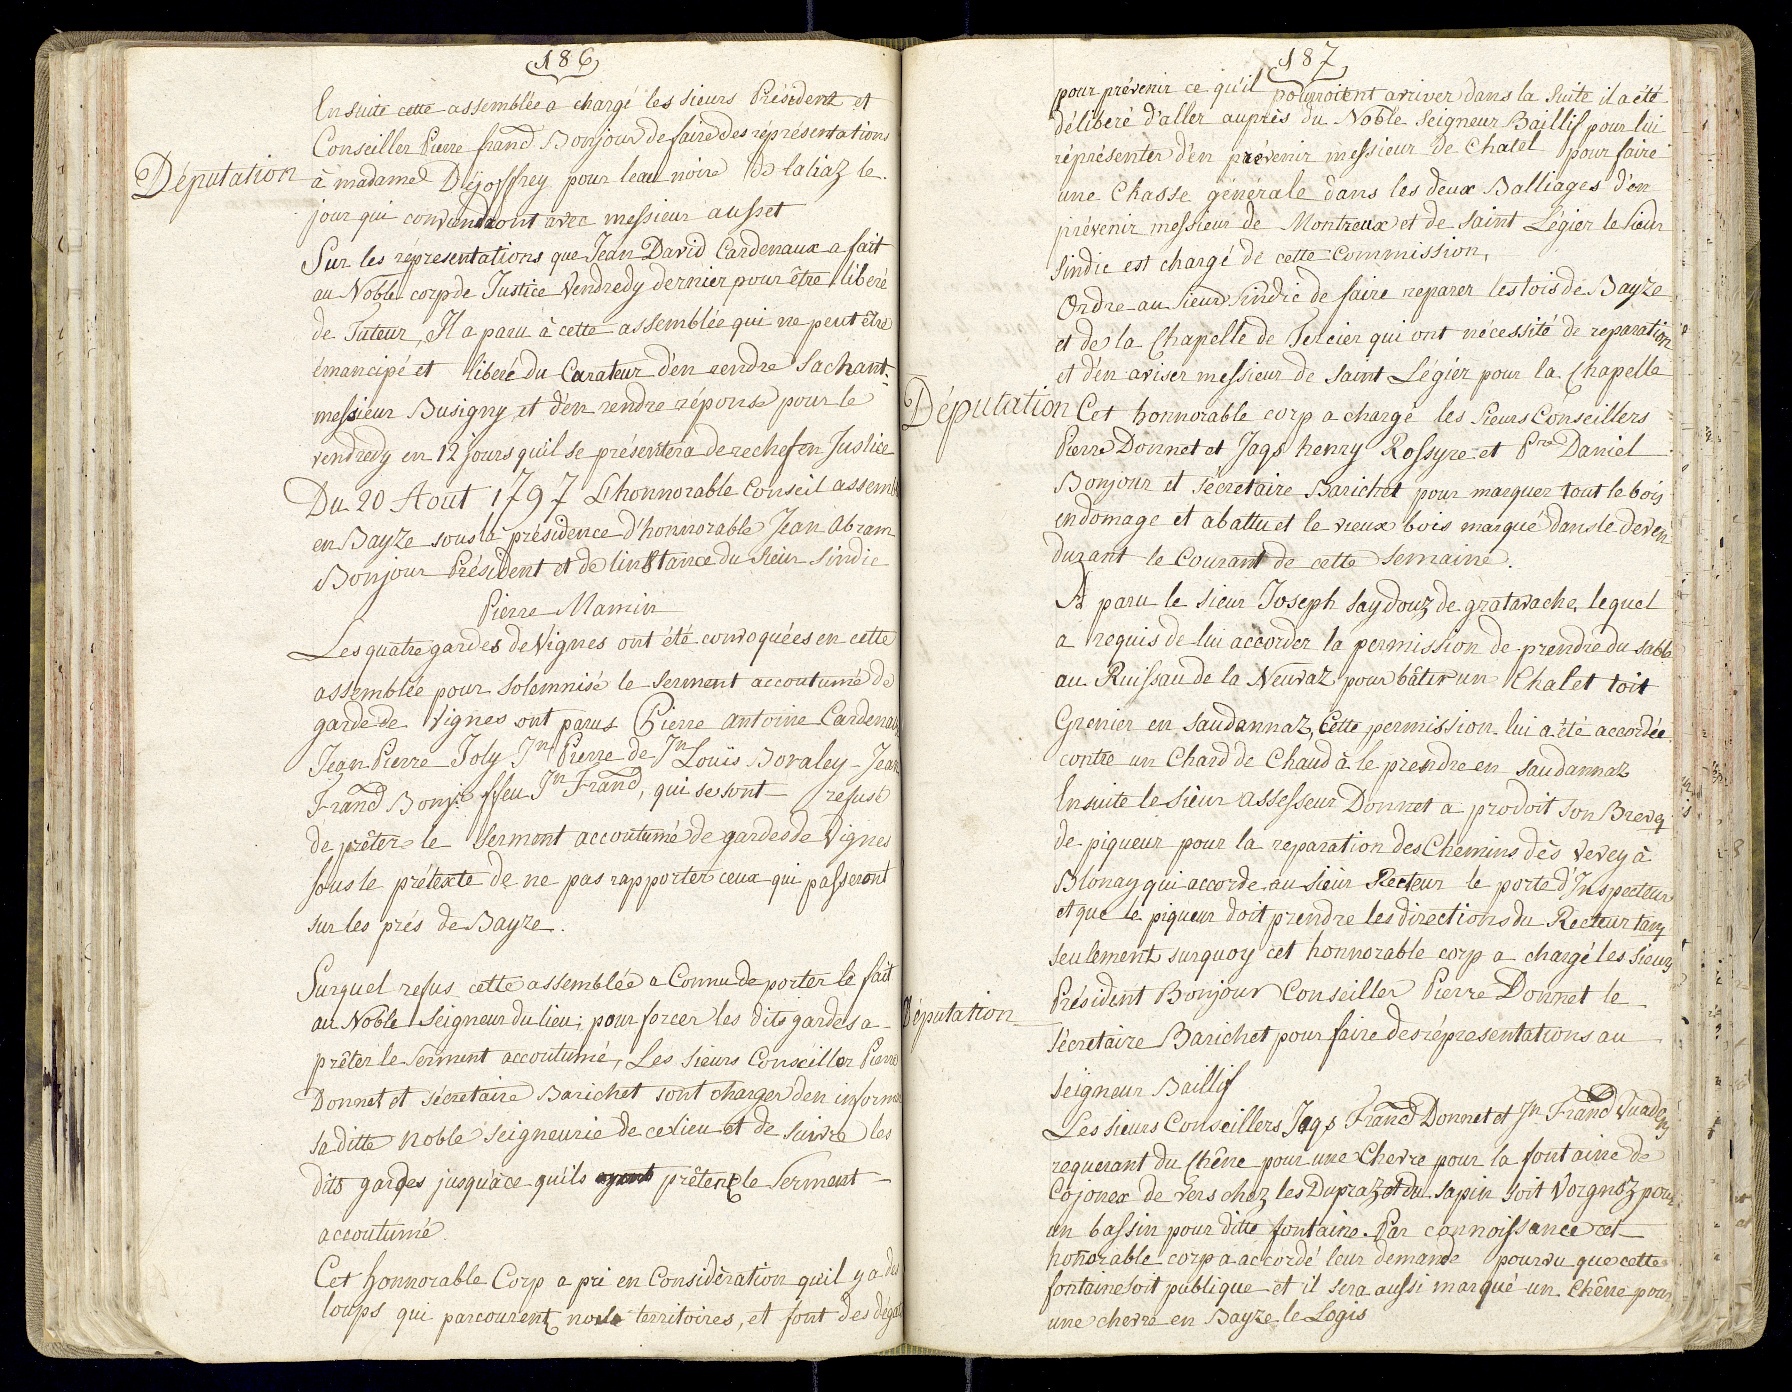 186
Ensuite cette assemblée a chargé les sieurs Président et
Conseiller Pierre frand Bonjour de faire des réprésentations
Députation
à madame D'joffrey pour leau noire de laliaz le
jour qui conviendront avec messieur ausset
Sur les réprésentations que Jean David Cardenaux a fait
au Noble corp de Justice Vendredy dernier pour être liberé
de Tuteur, Il a paru à cette assemblée qui ne peut être
émancipé et liberé du Curateur d'en rendre Sachant
messieur Busigny et d'en rendre réponse pour le
vendredy en 12 jours qu'il se présentera derechef en Justice
Du 20 Aout 1797 L'honnorable Conseil assemb
en Bayze sous la présidence d'honnorable Jean Abram
Bonjour Président et de linstance du Sieur Sindic
Pierre Mamin
Les quatre gardes de Vignes ont été convoquées en cette
assemblée pour Solemnisé le Serment accoutumé de
garde de Vignes ont parus Pierre antoine Cardenaux
Jean Pierre Joly Jn Pierre de Jn Louïs Bovaley Jean
Frand Bonj. ffeu Jn Frand, qui se sont refusé
de prêter le Serment accoutumé de gardes de Vignes
sous le prétexte de ne pas rapporter ceux qui passeront
sur les prés de Bayze.
Surquel refus cette assemblée a Connu de porter le fait
au Noble Seigneur du lieu; pour forcer les dits gardes a
prêter le Serment accoutumé, Les Sieurs Conseiller Pierre
Donnet et sécretaire Barichet sont charger d'en informer
sa ditte noble Seigneurie de ce lieu et de Suivre les
dits gardes jusqu'àce qu'ils prêtent le Serment
accoutumé.
Cet honnorable Corp a pri en Considèration quil y a des
loups qui parcourent nos territoires, et font des dégat
187
pour prévenir ce qu'il pourroient arriver dans la Suite il a été
délibéré d'aller auprès du Noble Seigneur Baillif pour lui
réprésenter d'en prévenir messieur de Chatel pour faire
une Chasse générale dans les deux Balliages d'en
prévenir messieur de Montreux et de Saint Légier le Sieur
Sindic est chargé de cette Commission,
Ordre au Sieur Sindic de faire reparer les tois de Bayze
et de la Chapelle de Tercier qui ont nécessité de reparation
et d'en aviser messieur de Saint Légier pour la Chapelle
Députation
Cet honnorable corp a chargé les Sieurs Conseillers
Pierre Donnet et Jaqs henry Rossyre et Pre Daniel
Bonjour et sécretaire Barichet pour marquer tout le bois
endomage et abattu et le vieux bois marqué dans le deven
durant le Courant de cette Semaine.
A paru le Sieur Joseph Saydouz de gratavache, lequel
a requis de lui accorder la permission de prendre du sable
au Ruissau de la Neuvaz pour bâtir un Chalet toit
Grenier en Saudannaz, Cette permission lui a été accordée
contre un Chard de Chaud à le prendre en Saudannaz
Ensuite le Sieur assesseur Donnet a prodoit Son Brevez
de piqueur pour la reparation des Chemins dès Vevey à
Blonay qui accorde au Sieur Recteur le porte d'Inspecteur
et que le piqueur doit prendre les directions du Recteur tans
seulement surquoy cet honnorable corp a chargé les Sieurs
Députation
Président Bonjour Conseiller Pierre Donnet le
Sécretaire Barichet pour faire des répresentations au
Seigneur Baillif
Les sieurs Conseillers Jaqs Frand Donnet et Jn Frand Vuadens
requerant du Chêne pour une Chevre pour la fontaine de
Cojonex de vers chez les Dupraz et du sapin soit Vorgnoz pour
un bassin pour ditte fontaine. Par connoissance cet
honorable corp a accordé leur demande pourvu que cette
fontaine soit publique et il sera aussi marqué un Chêne pour
une chevre en Bayze le Logis